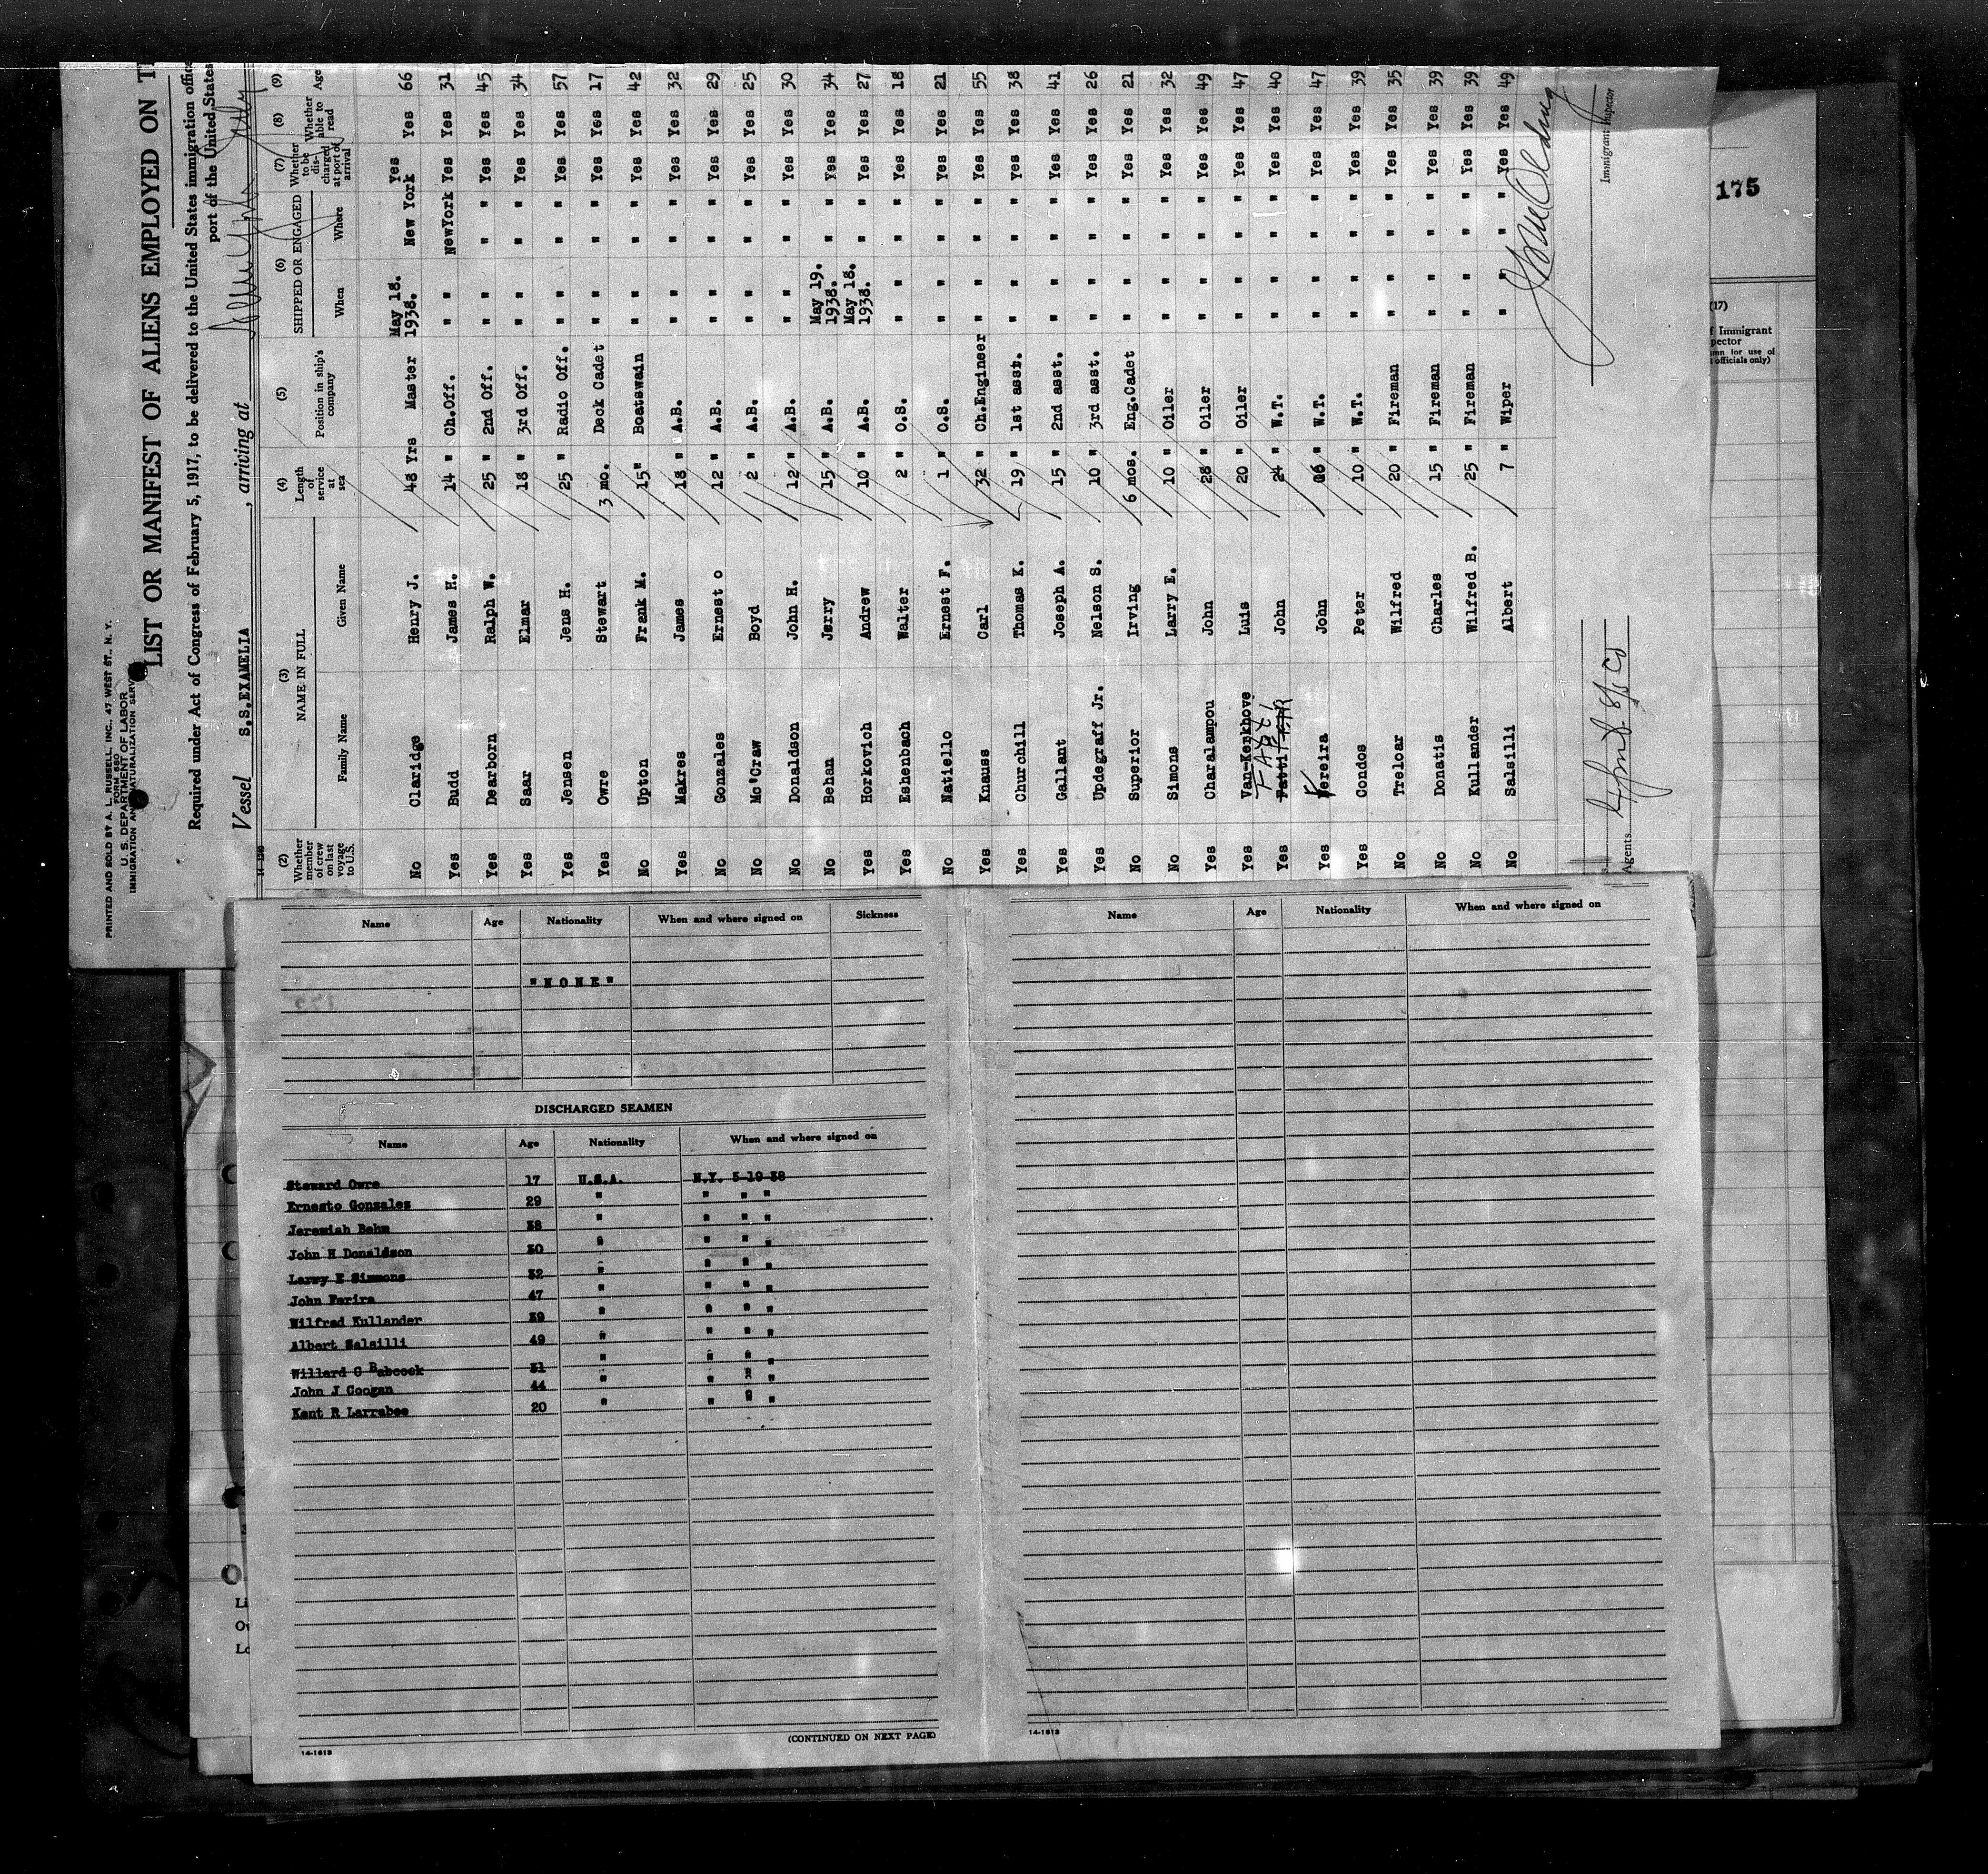 PRINTED AND SOLD BY A. L. RUSSELL, INC., 47 WEST ST., N. Y.
FORM 680
U. S. DEPARTMENT OF LABOR
IMMIGRATION AND NATURALIZATION SERVICE
LIST OR MANIFEST OF ALIENS EMPLOYED ON
Required under Act of Congress of February 5, 1917, to be delivered to the United States immigration
port of the United States
Vessel S.S.EXAMELIA, arriving at
(2) (3) (4) (5) (6) (7) (8) (9)
Whether member of crew on last voyage to U.S. NAME IN FULL Family Name Given Name Length of service at sea Position in ship's company SHIPPED OR ENGAGED When Where Whether to be discharged at port of arrival Whether able to read Age
No Claridge Henry J. 48 Yrs Master May 18. 1938. New York Yes Yes 66
Yes Budd James H. 14 " Ch.Off. " " NewYork Yes Yes 31
Yes Dearborn Ralph W. 25 " 2nd Off. " " " " Yes Yes 45
Yes Saar Elmar 18 " 3rd Off. " " " " Yes Yes 34
Yes Jensen Jens H. 25 " Radio Off. " " " " Yes Yes 57
Yes Owre Stewart 3 mo. Deck Cadet " " " " Yes Yes 17
No Upton Frank M. 15" Boatswain " " " " Yes Yes 42
Yes Makres James 18 " A.B. " " " " Yes Yes 32
No Gonzales Ernest o 12 " A.B. " " " " Yes Yes 29
No McCraw Boyd 2 " A.B. " " " " Yes Yes 25
No Donaldson John H. 12 " A.B. " " " " Yes Yes 30
No Behan Jerry 15 " A.B. May 19. 1938. " " Yes Yes 34
Yes Horkovich Andrew 10 " A.B. May 18. 1938. " " Yes Yes 27
Yes Eshenbach Walter 2 " O.S. " " " " Yes Yes 18
No Natiello Ernest F. 1 " O.S. " " " " Yes Yes 21
Yes Knauss Carl 32 " Ch.Engineer " " " " Yes Yes 55
Yes Churchill Thomas K. 19 " 1st asst. " " " " Yes Yes 38
Yes Gallant Joseph A. 15 " 2nd asst. " " " " Yes Yes 41
Yes Updegraff Jr. Nelson S. 10 " 3rd asst. " " " " Yes Yes 26
No Superior Irving 6 mos. Eng.Cadet " " " " Yes Yes 21
No Simons Larry E. 10 " Oiler " " " " Yes Yes 32
Yes Charalampou John 28 " Oiler " " " " Yes Yes 49
Yes Van-Kerkhove Luis 20 " Oiler " " " " Yes Yes 47
Yes John 24 " W.T. " " " " Yes Yes 40
Yes Vereira John 16 " W.T. " " " " Yes Yes 47
Yes Condos Peter 10 " W.T. " " " " Yes Yes 39
No Treloar Wilfred 20 " Fireman " " " " Yes Yes 35
No Donatis Charles 15 " Fireman " " " " Yes Yes 39
No Kullander Wilfred B. 25 " Fireman " " " " Yes Yes 39
No Salsilli Albert 7 " Wiper " " " " Yes Yes 49
Agents
Immigrant Inspector
175
(17)
Immigrant
officials only)
Name Age Nationality When and where signed on Sickness
"NONE"
DISCHARGED SEAMEN
Name Age Nationality When and where signed on
Steward Owre 17 U.S.A. N.Y. 5-19-38
Ernesto Gonzales 29 " " " "
Jeremiah Behm 38 " " " "
John H Donaldson 30 " " " "
Larwy E Simmons 32 " " " "
John Ferira 47 " " " "
Wilfred Kullander 39 " " " "
Albert Salsilli 49 " " " "
Willard C Babcock 31 " " " "
John J Coogan 44 " " " "
Kent R Larrabee 20 " " " "
(CONTINUED ON NEXT PAGE)
14-1613
Name Age Nationality When and where signed on
14-1613